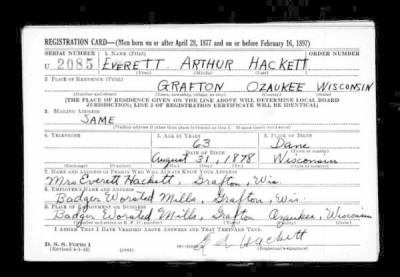 REGISTRATION CARD—(Men born on or after April 28, 1877 and on or before February 16, 1897)
SERIAL NUMBER 1. NAME (Print) ORDER NUMBER
U 2085 EVERETT ARTHUR HACKETT
(First) (Middle) (Last)
2. PLACE OF RESIDENCE (Print)
GRAFTON OZAUKEE WISCONSIN
(Number and street) (Town, township, village, or city) (County) (State)
[THE PLACE OF RESIDENCE GIVEN ON THE LINE ABOVE WILL DETERMINE LOCAL BOARD
JURISDICTION; LINE 2 OF REGISTRATION CERTIFICATE WILL BE IDENTICAL]
3. MAILING ADDRESS
SAME
[Mailing address if other than place indicated on line 2. If same insert word same]
4. TELEPHONE 5. AGE IN YEARS 6. PLACE OF BIRTH
63 Dane
DATE OF BIRTH (Town or county)
August 31, 1878 Wisconsin
(Exchange) (Number) (Mo.) (Day) (Yr.) (State or country)
7. NAME AND ADDRESS OF PERSON WHO WILL ALWAYS KNOW YOUR ADDRESS
Mrs Everett Hackett, Grafton, Wis.
8. EMPLOYER'S NAME AND ADDRESS
Badger Worsted Mills, Grafton, Wis.
9. PLACE OF EMPLOYMENT OR BUSINESS
Badger Worsted Mills, Grafton Ozaukee, Wisconsin
(Number and street or R. F. D. number) (Town) (County) (State)
I AFFIRM THAT I HAVE VERIFIED ABOVE ANSWERS AND THAT THEY ARE TRUE.
D. S. S. Form 1
(Revised 4-1-42) (over)
Hackett
(Registrant's signature)